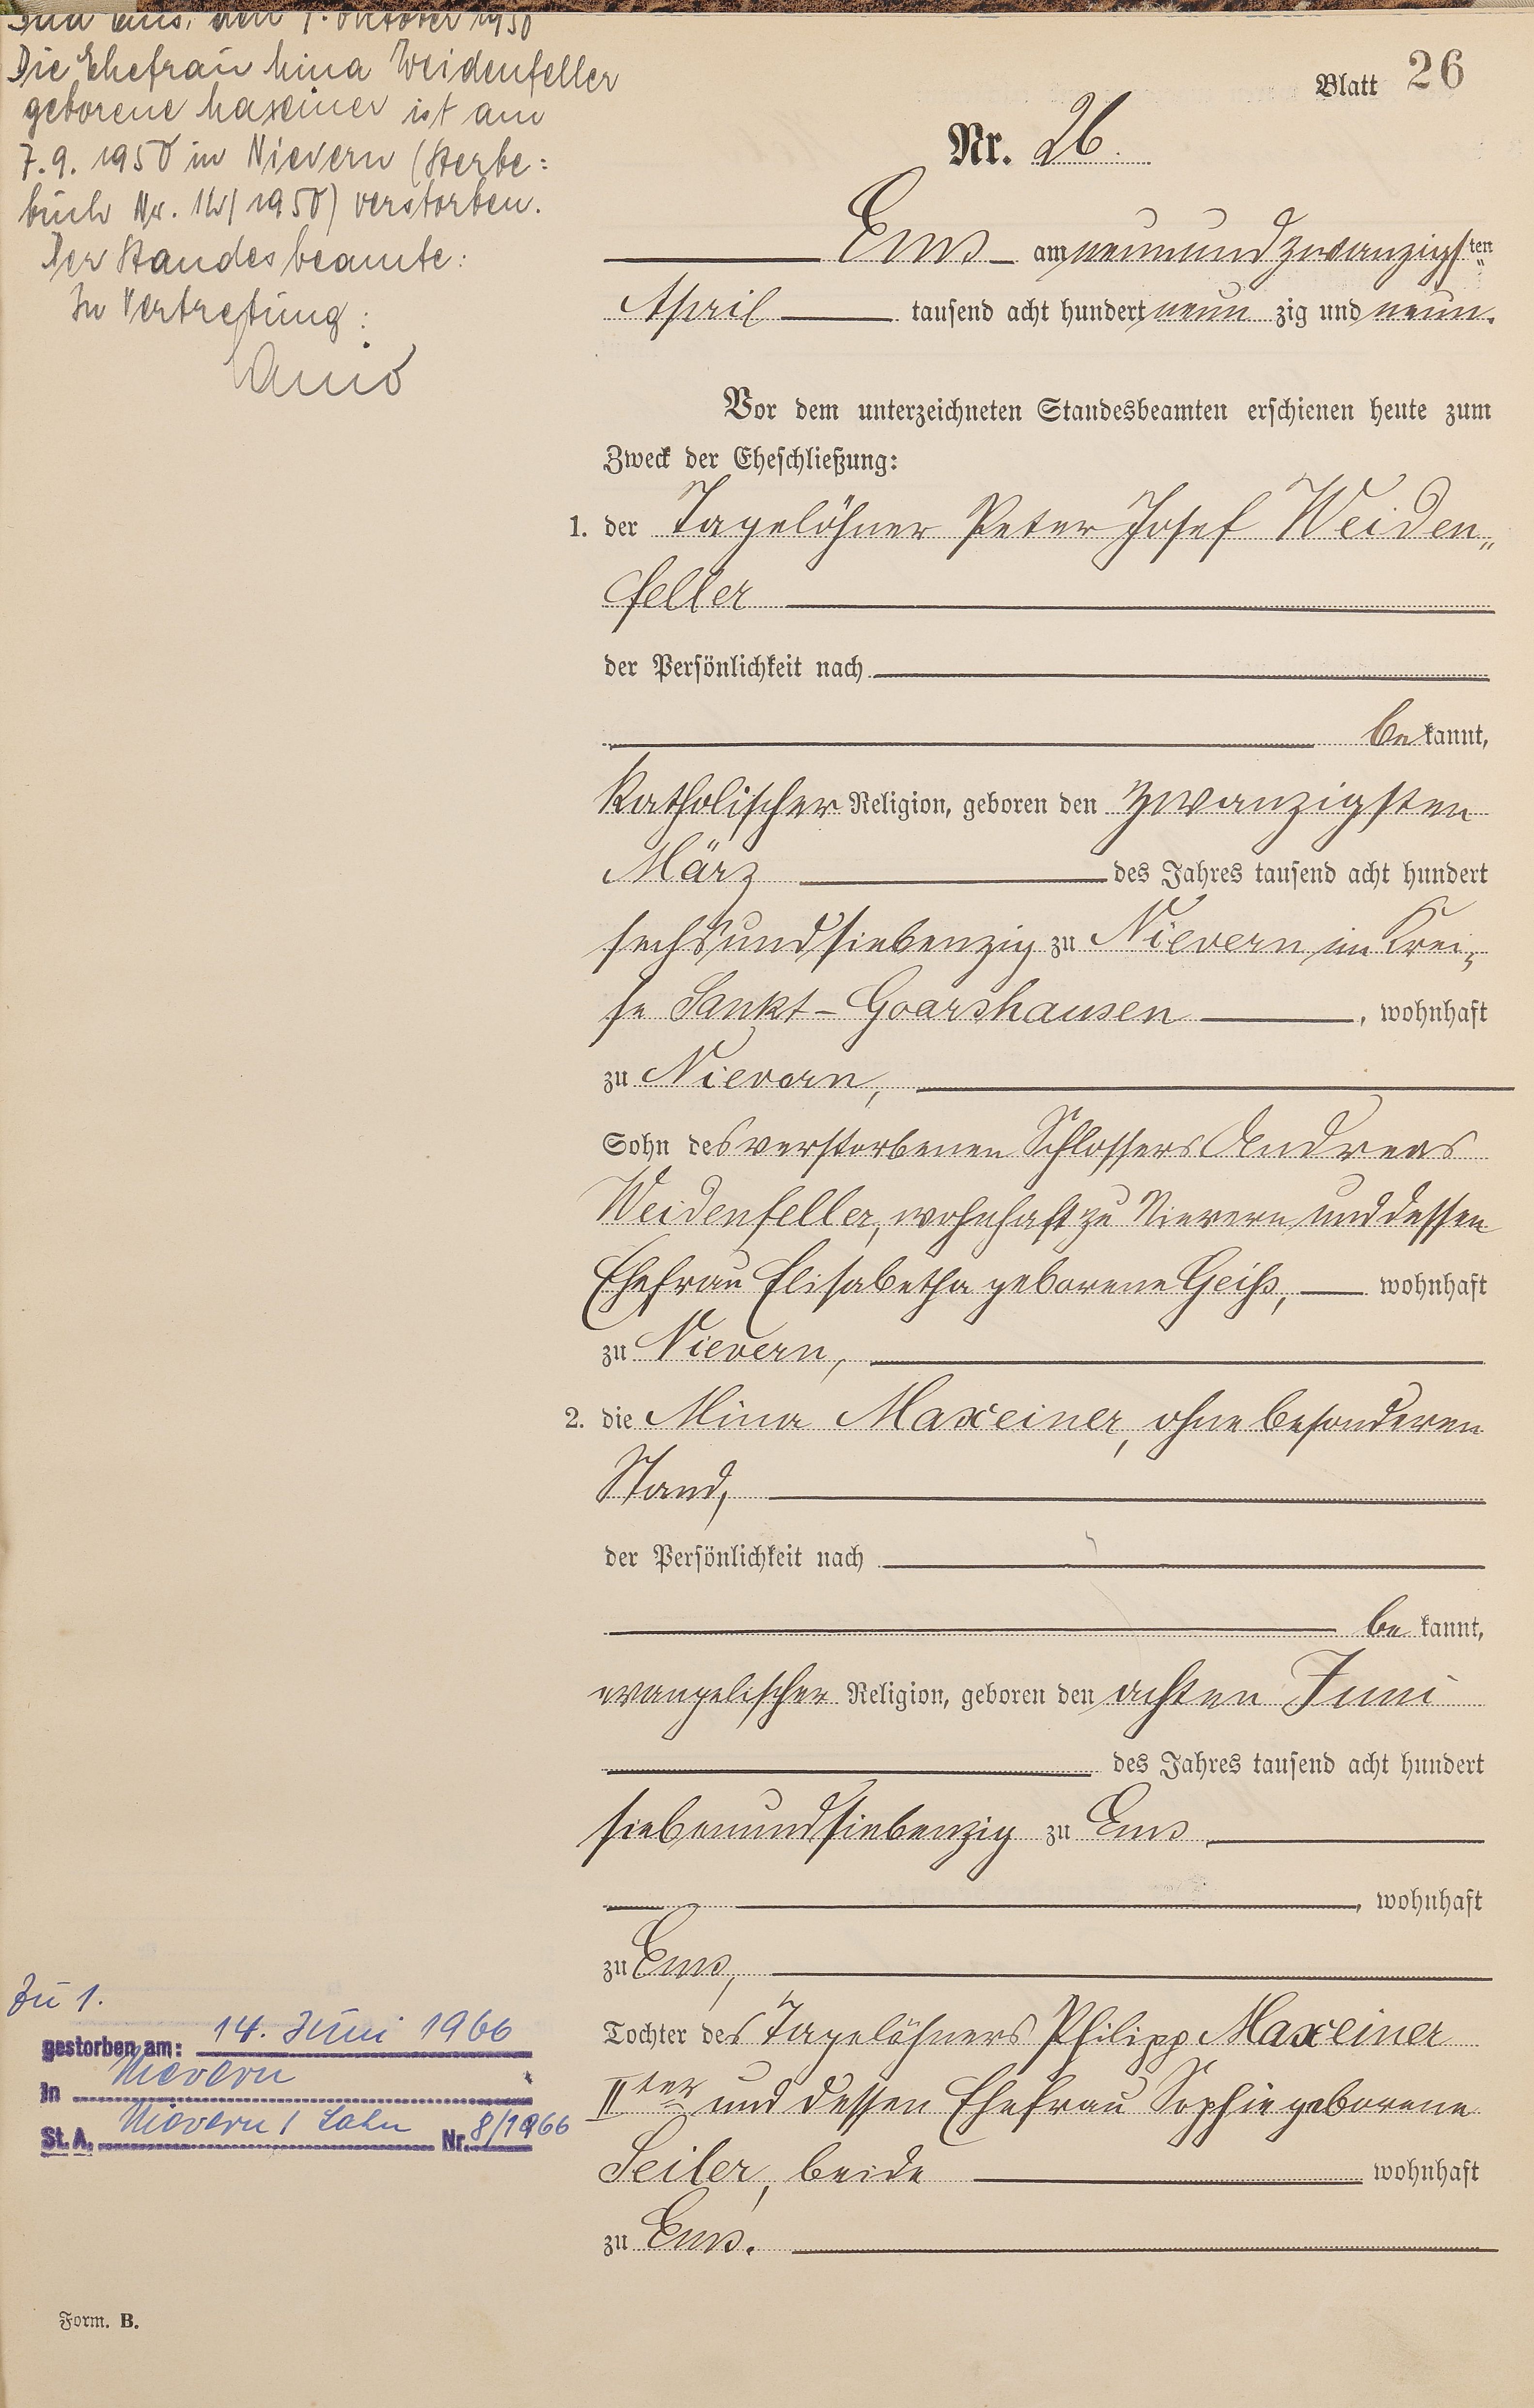 Bad Ems, den 7. Oktober 1950
Die Ehefrau Mina Weidenfeller
geborene Maxeiner ist am
7.9. 1950 in Nievern (Sterbe=
buch Nr. /1950) verstorben.
Der Standesbeamte:
In Vertretung:
Blatt 26
Nr. 26.
Ems am neunundzwanzigsten
April tausend acht hundert neun zig und neun.
Vor dem unterzeichneten Standesbeamten erschienen heute zum
Zweck der Eheschließung:
1. der Tagelöhner Peter Josef Weiden„
feller
der Persönlichkeit nach
be kannt,
katholischer Religion, geboren den zwanzigsten
März des Jahres tausend acht hundert
sechsundsiebenzig zu Nievern im Krei„
se Sankt-Goarshausen, wohnhaft
zu Nievern,
Sohn des verstorbenen Schlossers Andreas
Weidenfeller, wohnhaft zu Nievern und dessen
Ehefrau Elisabetha geborene Geiß, wohnhaft
zu Nievern,
2. die Mina Maxeiner, ohne besonderen
Stand,
der Persönlichkeit nach
be kannt,
evangelischer Religion, geboren den achten Juni
des Jahres tausend acht hundert
siebenundsiebenzig zu Ems
, wohnhaft
zu Ems,
Tochter des Tagelöhners Philipp Maxeiner
IIter und dessen Ehefrau Sophie geborene
Seiler, beide wohnhaft
zu Ems.
Zu 1.
gestorben am: 14. Juni 1966
in Nievern
St. A. Nievern / Lahn Nr. 8/1966
Form. B.